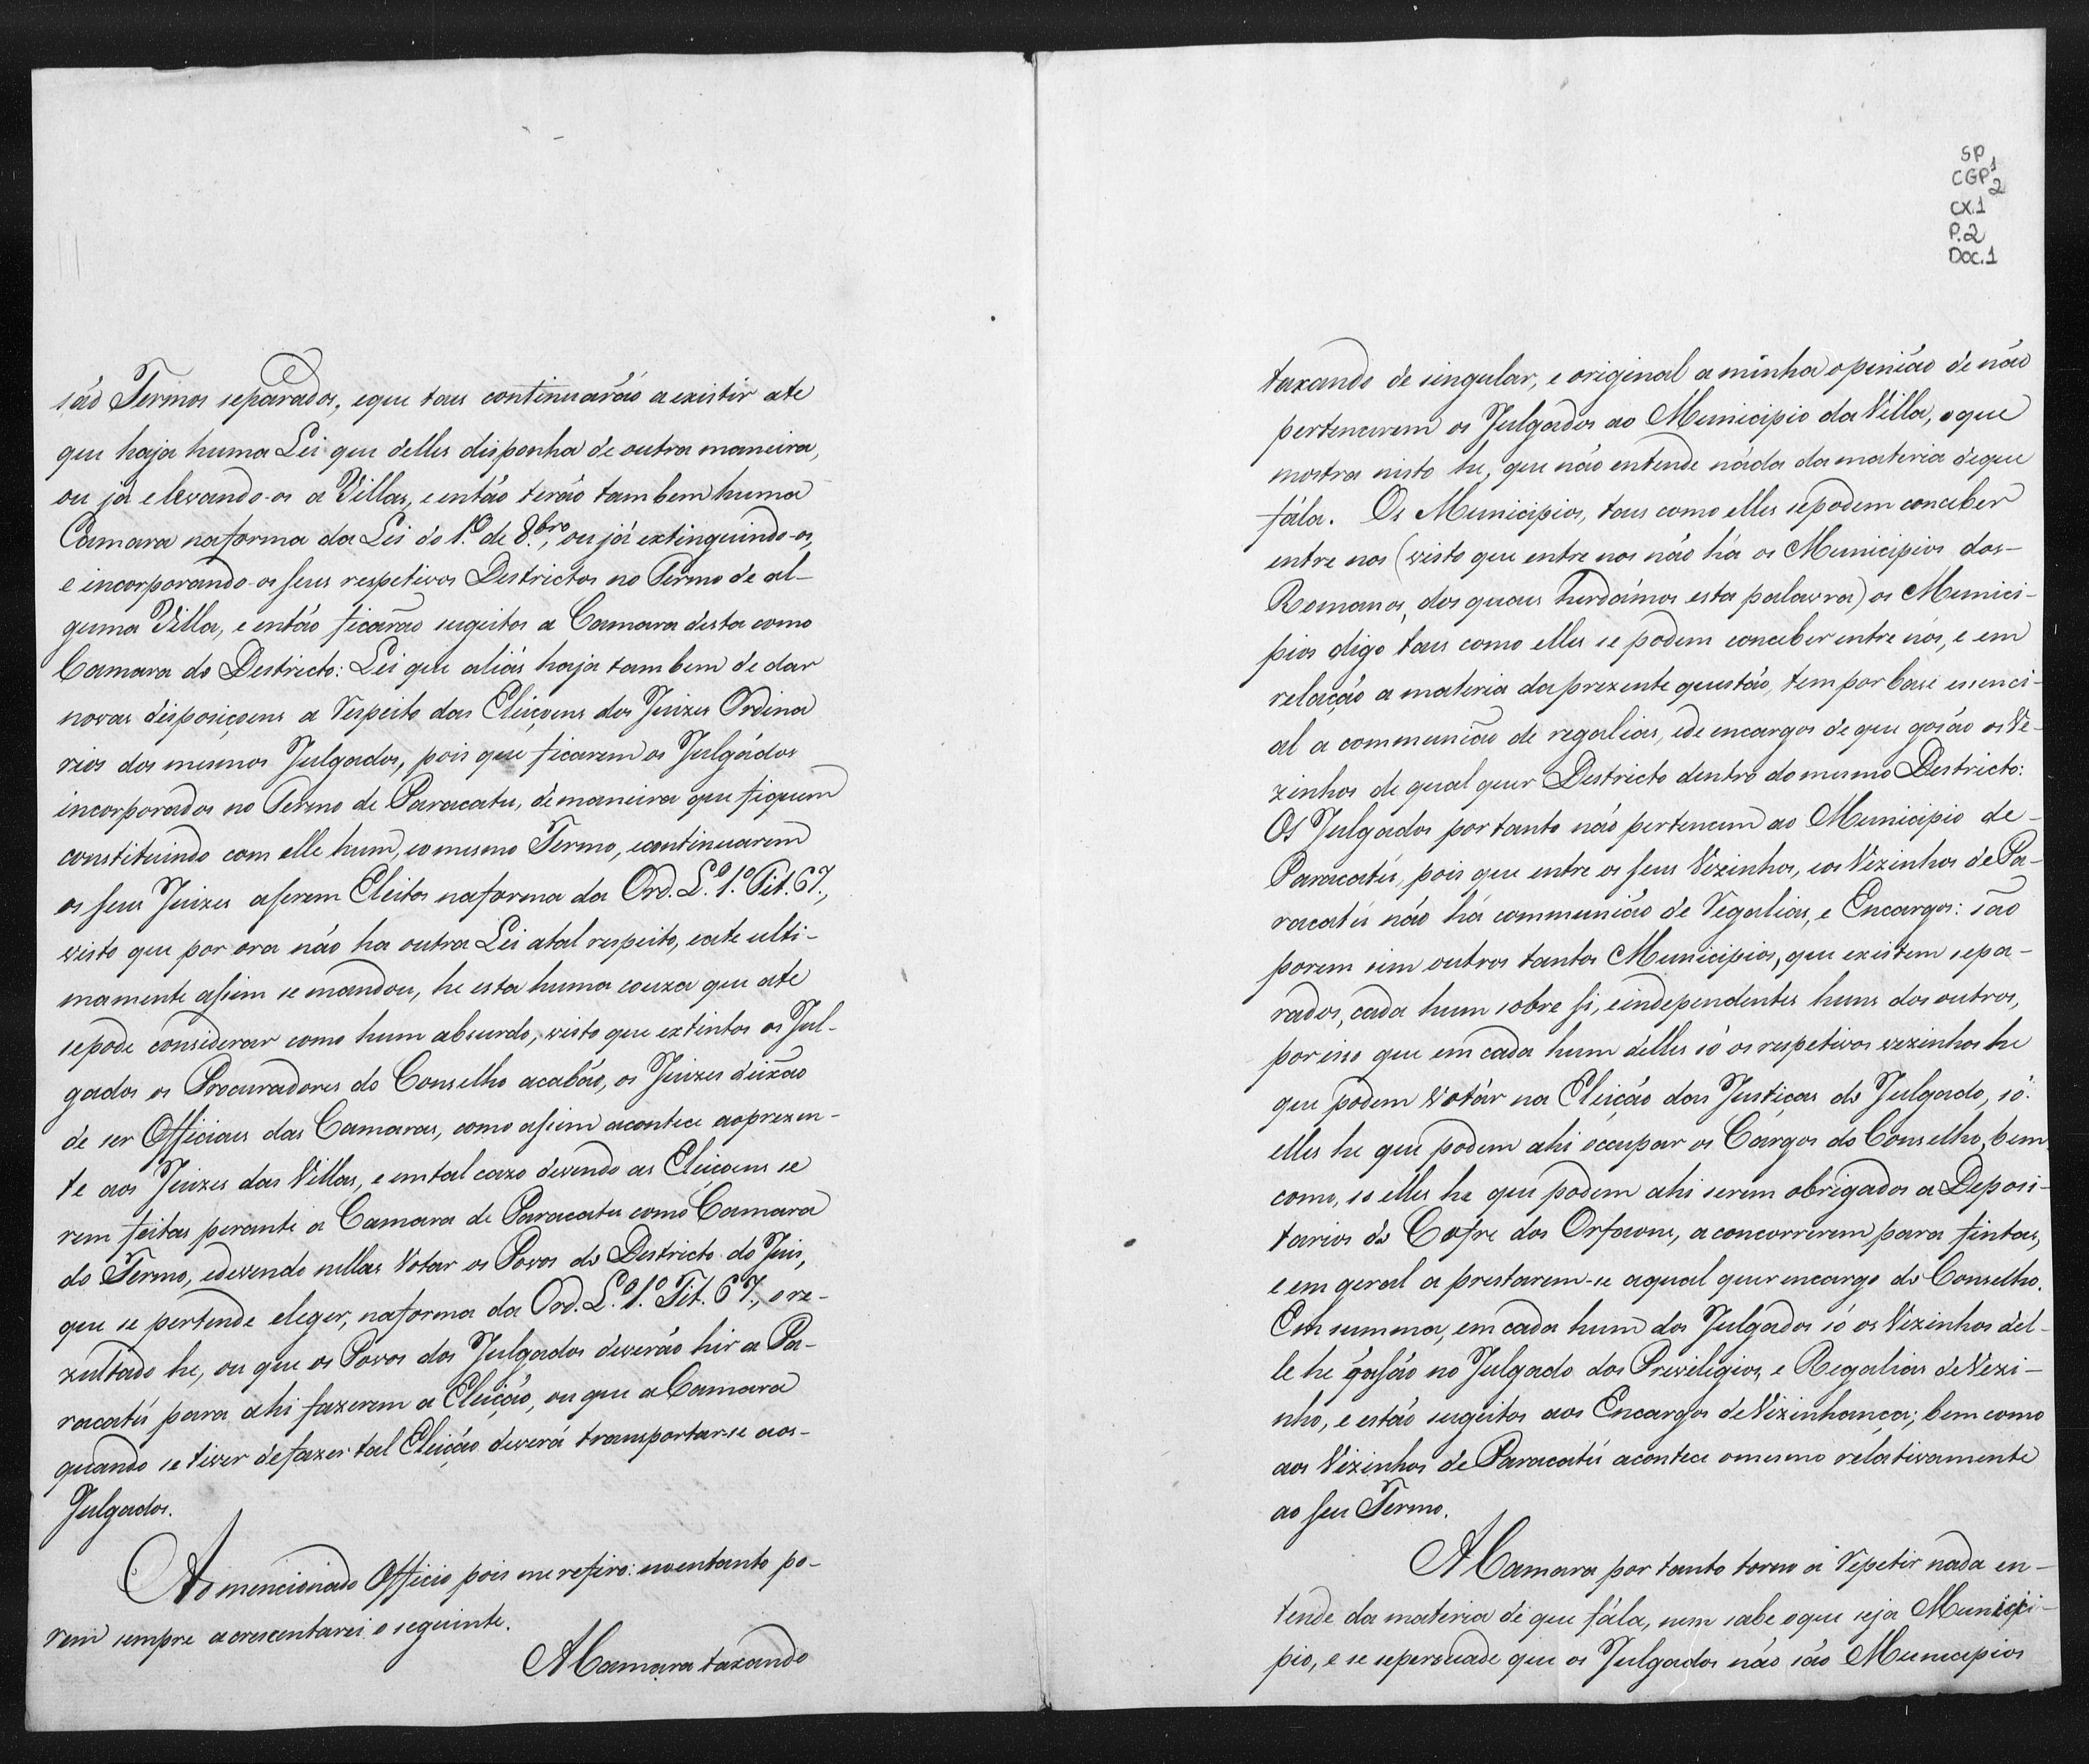 são Termos separados, eque taes continuarão aexistir ate
que haja huma Lei que delles disponha de outra maneira,
ou já elevando-os a Villas, e então terão tambem huma
Camara naforma da Lei do 1.º de 8.bro, ou já extinguindo-os,
e incorporando os seus respetivos Destrictos no Termo de al-
guma Villa, e então ficarão sugeitos a Camara desta como
Camara do Destricto: Lei que aliás haja tambem de dar
novas disposiçoens a Respeito das Eleiçoens dos Juizes Ordina
rios dos mesmos Julgados, pois que ficarem os Julgádos
incorporados no Termo de Paracatu, demaneira que fiquem
constituindo com elle hum, eomesmo Termo, econtinuarem
os seus Juizes aserem Eleitos naforma da Ord. L.º 1.º Tit. 67.,
visto que por ora não ha outra Lei atal respeito, eate ulti-
mamente assim se mandou, he esta huma couza que ate
sepode considerar como hum absurdo, visto que extintos os Jul-
gados os Procuradores do Conselho acabão, os Juizes deixão
de ser Officiaes das Camaras, como assim acontece aoprezen-
te aos Juizes das Villas, e emtal cazo devendo as Eleiçoens se
rem feitas perante a Camara de Paracatu como Camara
do Termo, edevendo nellas Votar os Povos do Destricto do Juis,
que se pertende eleger, naforma da Ord. L.º 1.º Tit. 67., o re-
zultado he, ou que os Povos dos Julgados deverão hir a Pa-
racatú para ahi fazerem a Eleição, ou que a Camara
quando se tiver defazer tal Eleição deverá transportar-se aos-
Julgados.
Ao mencionado Officio pois me refiro: noentanto po-
rem sempre acrescentarei o seguinte.
A Camara taxando
SP
CGP 1
2
CX.1
P.2
DOC.1
taxando de singular, e original a minha opinião de não
pertencerem os Julgados ao Municipio da Villa, oque
mostra nisto he, que não entende náda da materia deque
fála. Os Municipios, taes como elles sepodem conceber
entre nos (visto que entre nos não há os Municipios dos-
Romanos, dos quaes herdámos esta palavra) os Munici-
pios digo taes como elles se podem conceber entre nós, e em
relação a materia daprezente questão, tem por base essenci-
al a communião de regalias, ede encargos de que gosão os Ve-
zinhos de qual quer Destricto dentro do mesmo Destricto:
Os Julgados por tanto não pertencem ao Municipio de-
Paracatú, pois que entre os seus Vezinhos, eos Vezinhos de Pa-
racatú não há communião de Regalias, e Encargos: são
porem sim outros tantos Municipios, que existem sepa-
rados, cada hum sobre si, eindependentes huns dos outros,
por isso que em cada hum delles só os respetivos vezinhos he
que podem Votár na Eleição das Justiças do Julgado, só
elles he que podem ahi occupar os Cargos do Conselho, bem
como, so elles he que podem ahi serem obrigados a Deposi-
tarios do Cofre dos Orfaons, a concorrerem para fintas,
e em geral a prestarem-se aqual quer encargo do Conselho.
Em summa, em cada hum dos Julgados só os Vezinhos del-
le he gosão no Julgado dos Previligios, e Regalias de Vezi-
nho, e estão sugeitos aos Encargos de Vezinhança; bem como
aos Vezinhos de Paracatú acontece omesmo relativamente
ao seu Termo.
A Camara por tanto torno a Repetir nada en-
tende da materia de que fála, nem sabe oque seja Munici-
pio, e se sepersuade que os Julgados não são Municipios